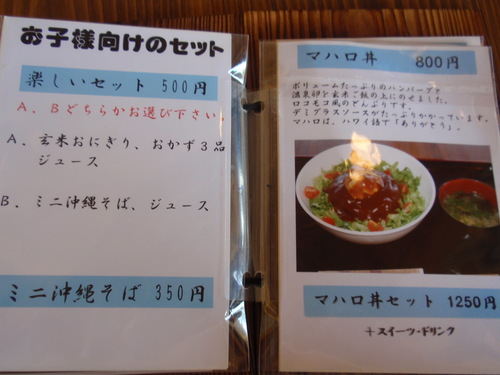 お子様向けのセット
楽しいセット 500円
A、Bどちらかお選び下さい
A、玄米おにぎり、おかず3品
ジュース
B、ミニ沖縄そば、ジュース
ミニ沖縄そば 350円
マハロ丼 800円
ボリュームたっぷりのハンバーグと
温泉卵を玄米ご飯の上にのせました。
ロコモコ風のどんぶりです。
デミグラスソースがたっぷりかかっています。
マハロは、ハワイ語で「ありがとう」。
マハロ丼セット 1250円
+スイーツ・ドリンク